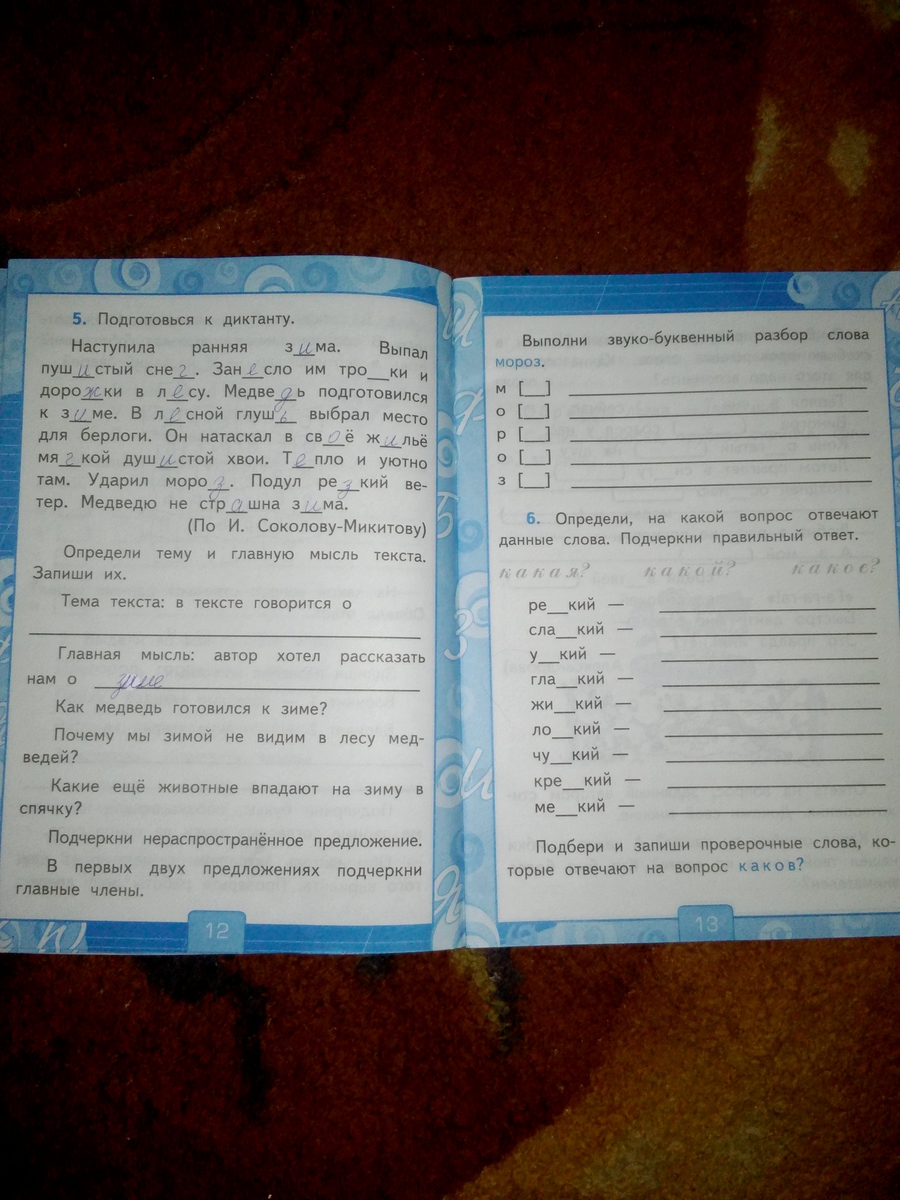 5. Подготовься к диктанту.
Наступила ранняя зима. Выпал
пушистый снег. Занесло им тро__ки и
дорожки в лесу. Медведь подготовился
к зиме. В лесной глушь выбрал место
для берлоги. Он натаскал в своё жильё
мягкой душистой хвои. Тепло и уютно
там. Ударил мороз. Подул резкий ве-
тер. Медведю не страшна зима.
(По И. Соколову-Микитову)
Определи тему и главную мысль текста.
Запиши их.
Тема текста: в тексте говорится о
Главная мысль: автор хотел рассказать
нам о зиме
Как медведь готовился к зиме?
Почему мы зимой не видим в лесу мед-
ведей?
Какие ещё животные впадают на зиму в
спячку?
Подчеркни нераспространённое предложение.
В первых двух предложениях подчеркни
главные члены.
12
Выполни звуко-буквенный разбор слова
мороз.
м [__]
о [__]
р [__]
о [__]
з [__]
6. Определи, на какой вопрос отвечают
данные слова. Подчеркни правильный ответ.
какая? какой? какое?
ре__кий —
сла__кий —
у__кий —
гла__кий —
жи__кий —
ло__кий —
чу__кий —
кре__кий —
ме__кий —
Подбери и запиши проверочные слова, ко-
торые отвечают на вопрос каков?
13